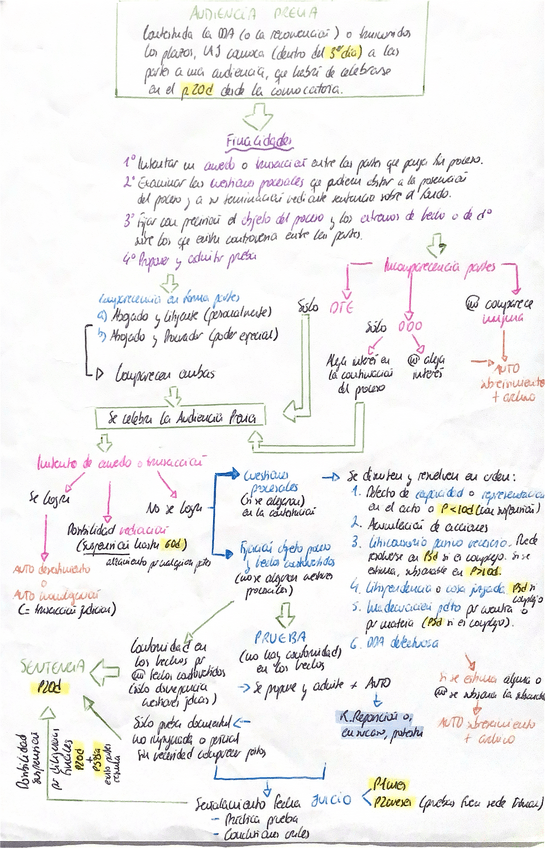 AUDIENCIA PREVIA
Contestada la DDA (o la reconvención) o transcurridos
los plazos, LAJ convoca (dentro del 3er día) a las
partes a una audiencia, que habrá de celebrarse
en el p20d desde la convocatoria.
Finalidades
1º Intentar un acuerdo o transacción entre las partes que ponga fin proceso.
2º Examinar las cuestiones procesales que pudieran obstar a la prosecución
del proceso y a su terminación mediante sentencia sobre el fondo.
3º Fijar con precisión el objeto del proceso y los extremos de hecho o de dº
sobre los que exista controversia entre las partes.
4º Proponer y admitir prueba
Incomparecencia partes
Comparecencia en forma partes
a) Abogado y litigante (personalmente)
b) Abogado y Procurador (poder especial)
Comparecen ambas
Sólo DTE
Sólo DDO
comparece
ninguna
Alega interés en
la continuación
del proceso
alega
interés
AUTO
sobreseimiento
+ archivo
Se celebra la Audiencia Previa
Intento de acuerdo o transacción
Se logra
No se logra
Posibilidad mediación
(suspensión hasta 60d)
AUTO desistimiento
o
AUTO homologación
(= transacción judicial)
Cuestiones
procesales
(si se alegaron)
en la contestación
Fijación objeto proceso
y hechos controvertidos
(no se alegaron cuestiones
procesales)
Se discuten y resuelven en orden:
1. Defecto de capacidad o representación
en el acto o P<10d (con suspensión)
2. Acumulación de acciones
3. Litisconsorcio pasivo necesario. Puede
resolverse en P5d si es complejo. Si se
estima, subsanable en P>10d.
4. Litispendencia o cosa juzgada P5d si
complejo
5. Inadecuación pdto por cuantía o
por materia (P5d si es complejo).
6. DDA defectuosa
Si se estima alguna o
se subsana
AUTO sobreseimiento +
archivo
Conformidad en
los hechos por
hechos controvertidos
(sólo discrepancia
cuestiones jdcas)
PRUEBA
(no hay conformidad)
en los hechos
Se propone y admite + AUTO
R. Reposición o,
en su caso, protesta
SENTENCIA
P20d
Sólo prueba documental
no impugnada o pericial
sin necesidad comparecer peritos
Posibilidad
suspensión
por diligencias
finales
P20d
+
P5d
Señalamiento fecha JUICIO
P1mes
P2meses (pruebas fuera sede tribunal)
- Práctica prueba
- Conclusiones orales